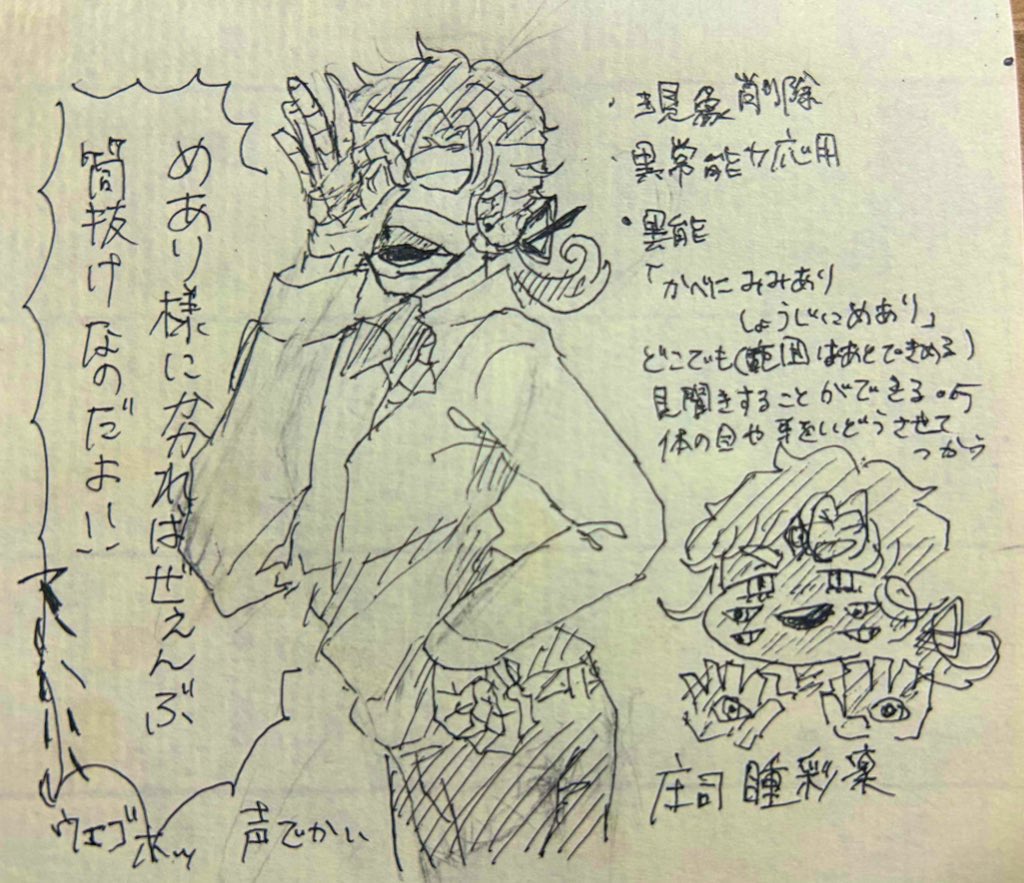 めあり様にかかればぜぇんぶ
筒抜けなのだよ!!
・現象削除
異常能力応用
・異能
「かべにみみあり
しょうじにめあり」
どこでも(範囲はあとできめる)
見聞きすることができる。
体の目や耳をいどうさせて
つかう
庄司 瞳彩
ウェゴホッ
声でかい